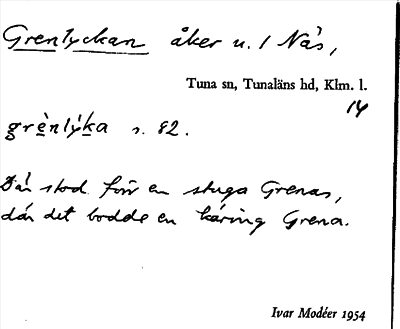 Grenlyckan åker u. 1 Näs,
Tuna sn, Tunaläns hd, Klm. l.
14
grènlýka s. 82.
Där stod förr en stuga Grenas,
där det bodde en käring Grena.
Ivar Modéer 1954